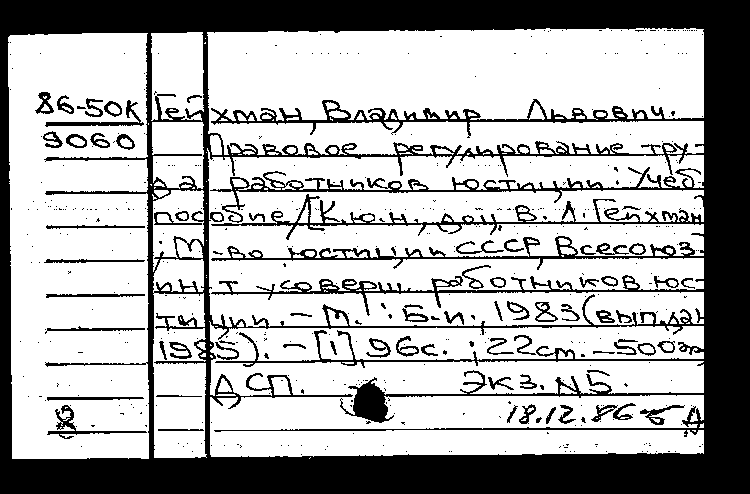 86-50К Гейхман, Владимир Львович.
9060 Правовое регулирование тру-
да работников юстиции: Учеб.
пособие /[К.ю.н., доц. В. Л. Гейхман]
; М-во юстиции СССР, Всесоюз.
ин-т усоверш. работников юс-
тиции. – М. : Б.и., 1983 (вып.дан.
1985). – [1], 96с. ; 22см. – 500э
ДСП. Экз. №5.
18.12.86